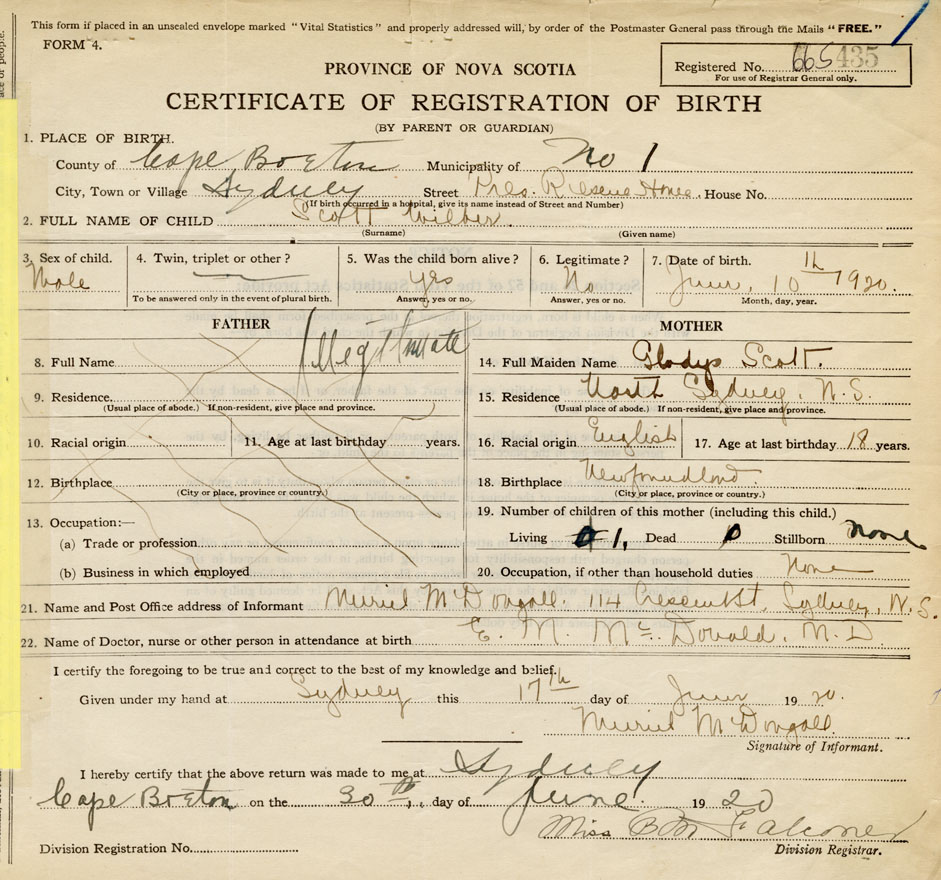 This form if placed in an unsealed envelope marked "Vital Statistics" and properly addressed will, by order of the Postmaster General pass through the Mails "FREE."
FORM 4.
Registered No. 665 435
For use of Registrar General only.
PROVINCE OF NOVA SCOTIA
CERTIFICATE OF REGISTRATION OF BIRTH
(BY PARENT OR GUARDIAN)
1. PLACE OF BIRTH.
County of Cape Breton Municipality of No 1
City, Town or Village Sydney Street Pres. Rescue Home House No.
(If birth occurred in a hospital, give its name instead of Street and Number)
2. FULL NAME OF CHILD Scott Wilber
(Surname) (Given name)
3. Sex of child. 4. Twin, triplet or other? 5. Was the child born alive? 6. Legitimate? 7. Date of birth.
Male yes No June, 10th 1920.
To be answered only in the event of plural birth. Answer, yes or no. Answer, yes or no. Month, day, year.
FATHER MOTHER
Illegitimate
8. Full Name 14. Full Maiden Name Gladys Scott.
9. Residence. 15. Residence North Sydney, N.S.
(Usual place of abode.) If non-resident, give place and province. (Usual place of abode.) If non-resident, give place and province.
10. Racial origin 11. Age at last birthday years. 16. Racial origin English 17. Age at last birthday 18 years.
12. Birthplace 18. Birthplace Newfoundland.
(City or place, province or country.) (City or place, province or country.)
13. Occupation:— 19. Number of children of this mother (including this child.)
(a) Trade or profession Living 1, Dead 0 Stillborn none
(b) Business in which employed 20. Occupation, if other than household duties None
21. Name and Post Office address of Informant Muriel McDougall. 114 Crescent St, Sydney, N.S.
22. Name of Doctor, nurse or other person in attendance at birth E. M. Mc Donald, M.D.
I certify the foregoing to be true and correct to the best of my knowledge and belief.
Given under my hand at Sydney this 17th day of June 1920.
Muriel McDougall.
Signature of Informant.
I hereby certify that the above return was made to me at Sydney
Cape Breton on the 30th, day of June 1920
Miss B M Falconer
Division Registration No. Division Registrar.